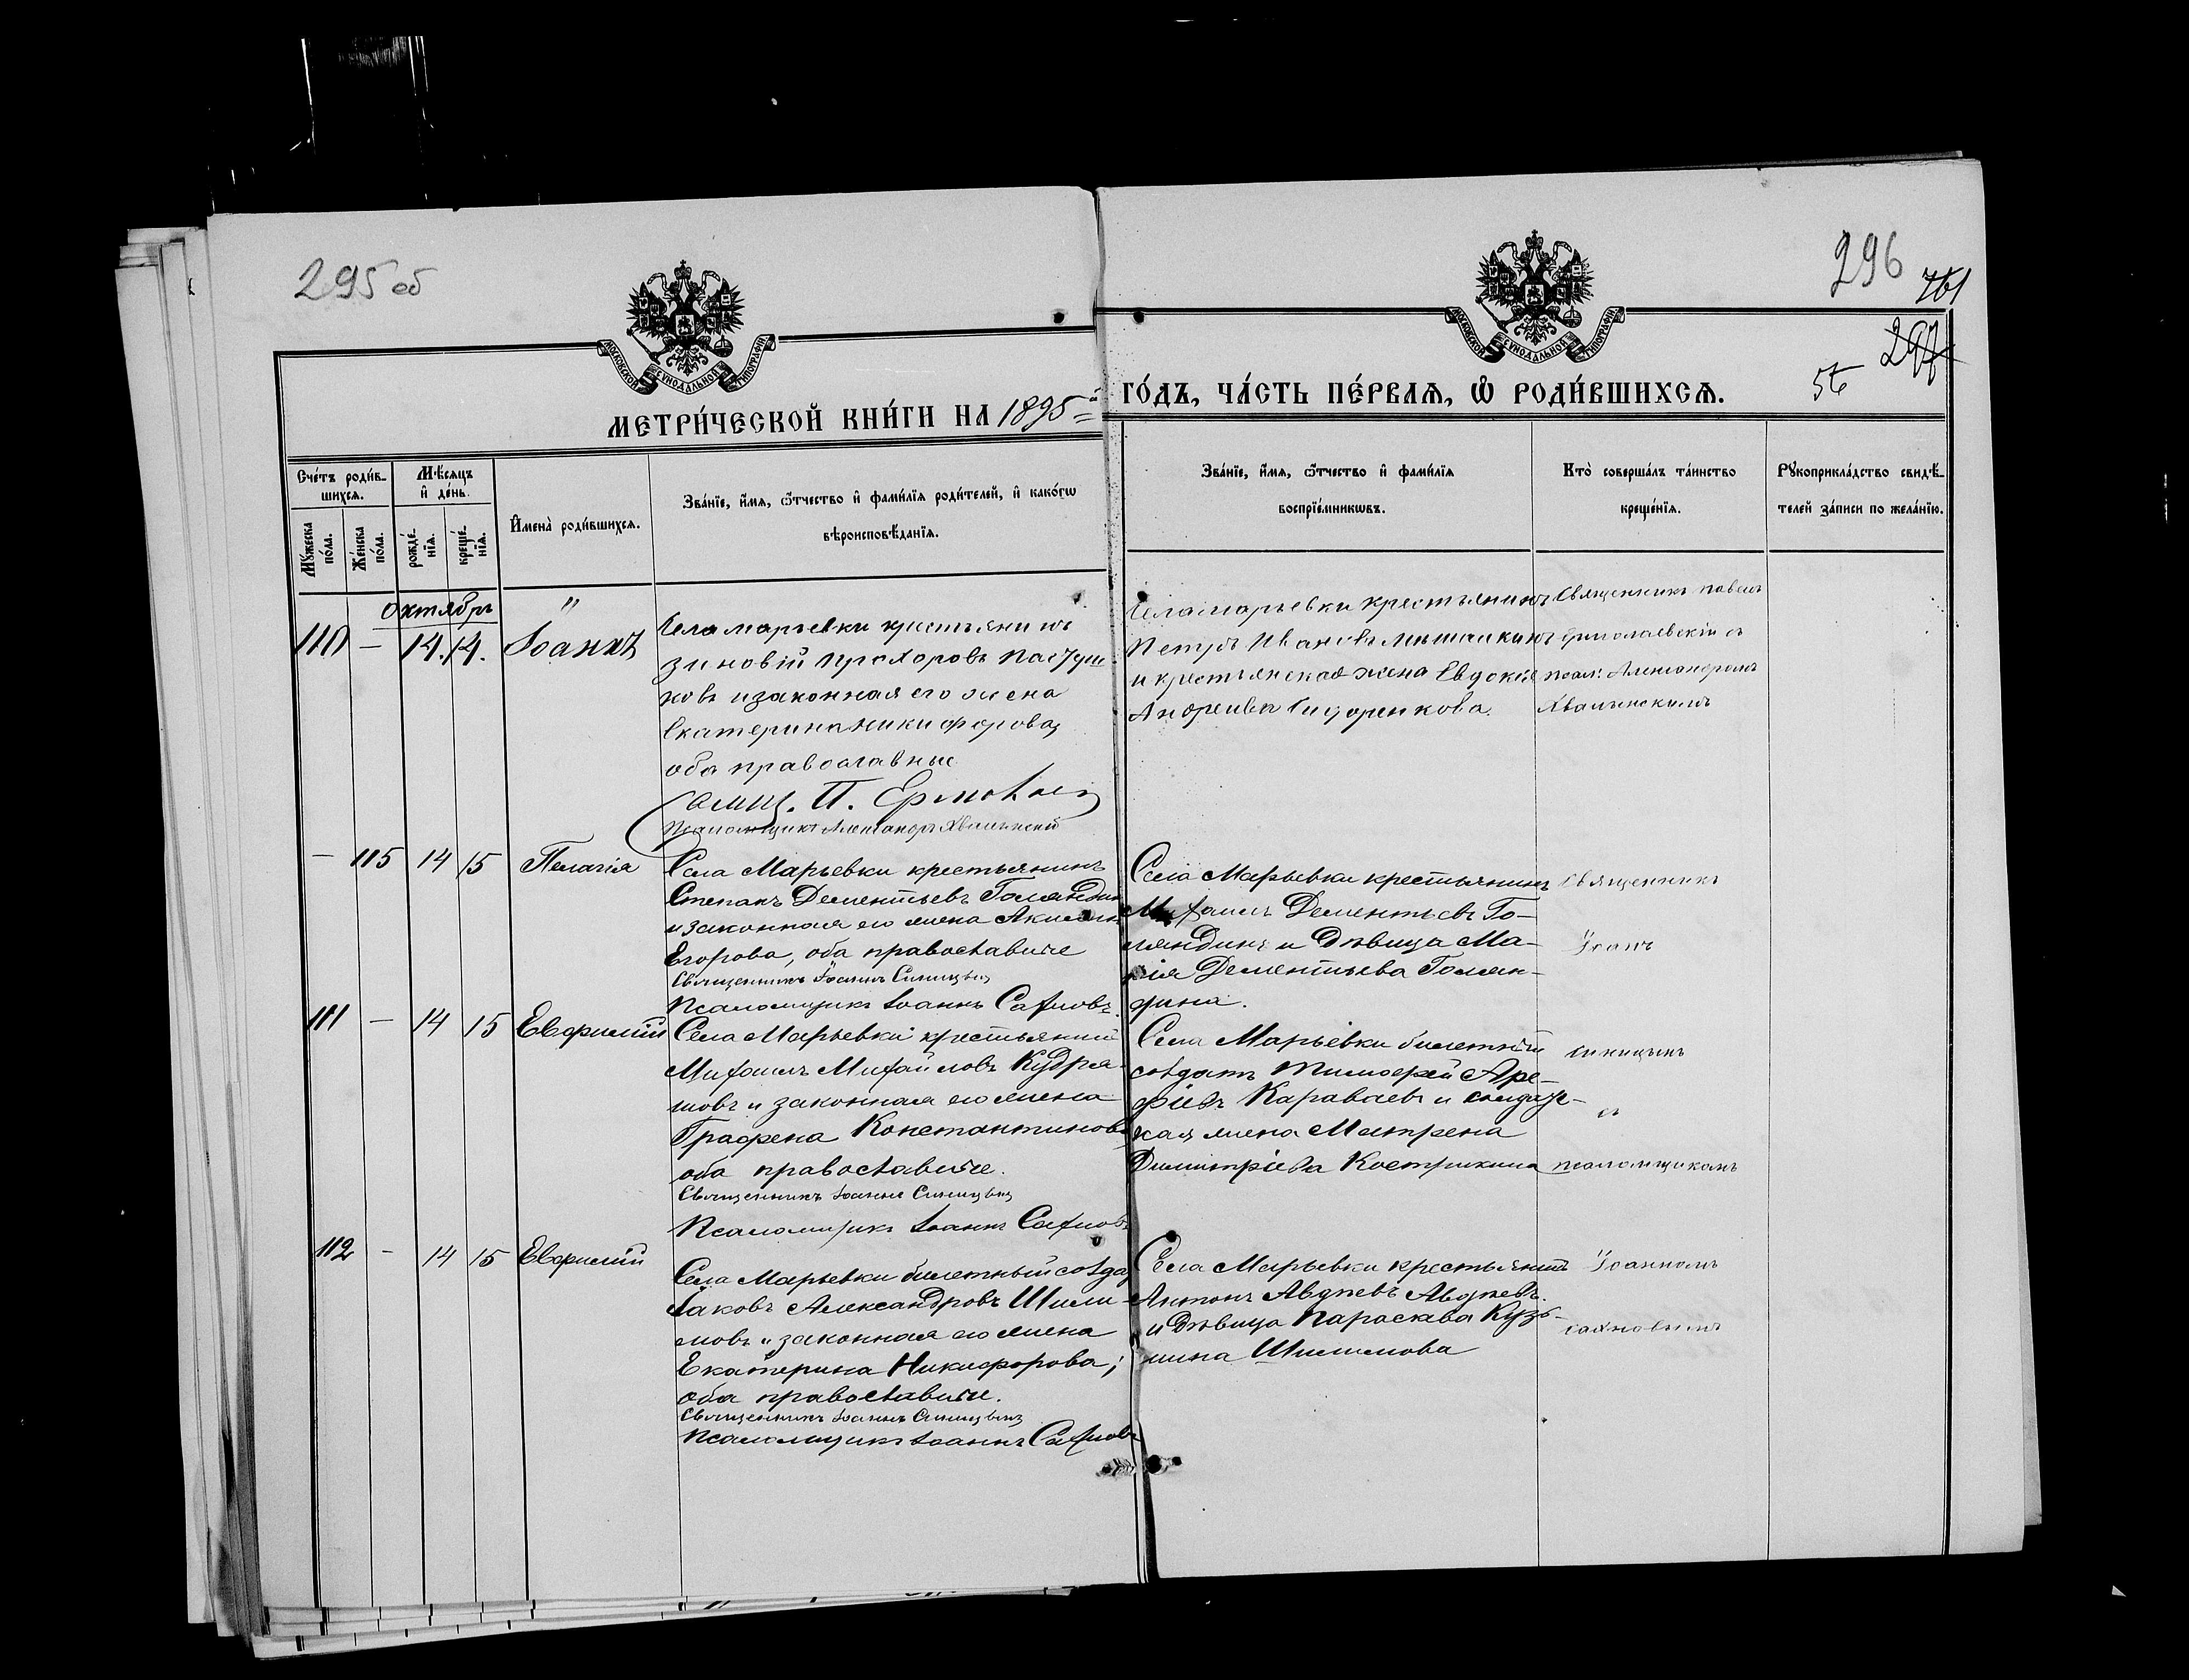 295 об
296
761
297
56
МОСКОВСКОЙ СѴНОДАЛЬНОЙ ТИПОГРАФІИ
МОСКОВСКОЙ СѴНОДАЛЬНОЙ ТИПОГРАФІИ
МЕТРИ́ЧЕСКОЙ КНИ́ГИ НА 1895-й ГО́ДЪ, ЧА́СТЬ ПЕ́РВАѦ, Ѡ РОДИ́ВШИХСѦ.
Сче́тъ роди́в-
шихсѧ.
Мꙋ́жеска по́ла.
Же́нска по́ла.
Мѣ́сѧцъ
и҆ де́нь.
рожде́нїѧ.
креще́нїѧ.
И҆мена̀ роди́вшихсѧ.
Зва́нїе, и҆́мѧ, ѻ҆́тчество и҆ фами́лїѧ роди́телей, и҆ како́гѡ
вѣроисповѣ́данїѧ.
Зва́нїе, и҆́мѧ, ѻ҆́тчество и҆ фами́лїѧ
воспрїе́мникѡвъ.
Кто̀ соверша́лъ та́инство
креще́нїѧ.
Рꙋкоприкла́дство свидѣ́-
телей за́писи по жела́нїю.
Октябрь
110 — 14. 14. Іоаннъ
Села Марьевки крестьянинъ
Зиновій Прохоровъ Пастуш-
ковъ и законная его жена
Екатерина Никифорова,
оба православные
П. Ермолаев
Псаломщикъ Александръ Хвалынскій
Села Марьевки крестьянинъ
Петръ Ивановъ Мышакинъ
и крестьянская жена Евдокія
Андреева Сидоренкова.
Священникъ Павелъ
Ермолаевскій съ
псал: Александромъ
Хвалынскимъ
— 115 14 15 Пелагія
Села Марьевки крестьянинъ
Степанъ Дементьевъ Голяндин
и законная его жена Акилина
Егорова, оба православные
Священникъ Іоаннъ Синицынъ
Псаломщикъ Іоаннъ Сахновъ.
Села Марьевки крестьянинъ
Михаилъ Дементьевъ Го-
ляндинъ и девица Ма-
рія Дементьева Голян-
дина.
Священникъ
Іоаннъ
111 — 14 15 Евфимій
Села Марьевки крестьянинъ
Михаилъ Михайловъ Кудря-
шовъ и законная его жена
Графена Константинова
оба православные.
Священникъ Іоаннъ Синицынъ
Псаломщикъ Іоаннъ Сахновъ
Села Марьевки билетный
солдатъ Тимофей Аре-
фіевъ Караваевъ и солдатс-
кая жена Матрена
Димитріева Кострикина
Синицынъ
съ
псаломщикомъ
112 — 14 15 Евфимій
Села Марьевки билетный солда
Іаковъ Александровъ Шиши-
мовъ и законная его жена
Екатерина Никифорова;
оба православные.
Священникъ Іоаннъ Синицынъ
Псаломщикъ Іоаннъ Сахновъ
Села Марьевки крестьянинъ
Антонъ Авдѣевъ Авдѣевъ.
и девица Параскева Кузь-
мина Шишимова
Іоанномъ
Сахновымъ